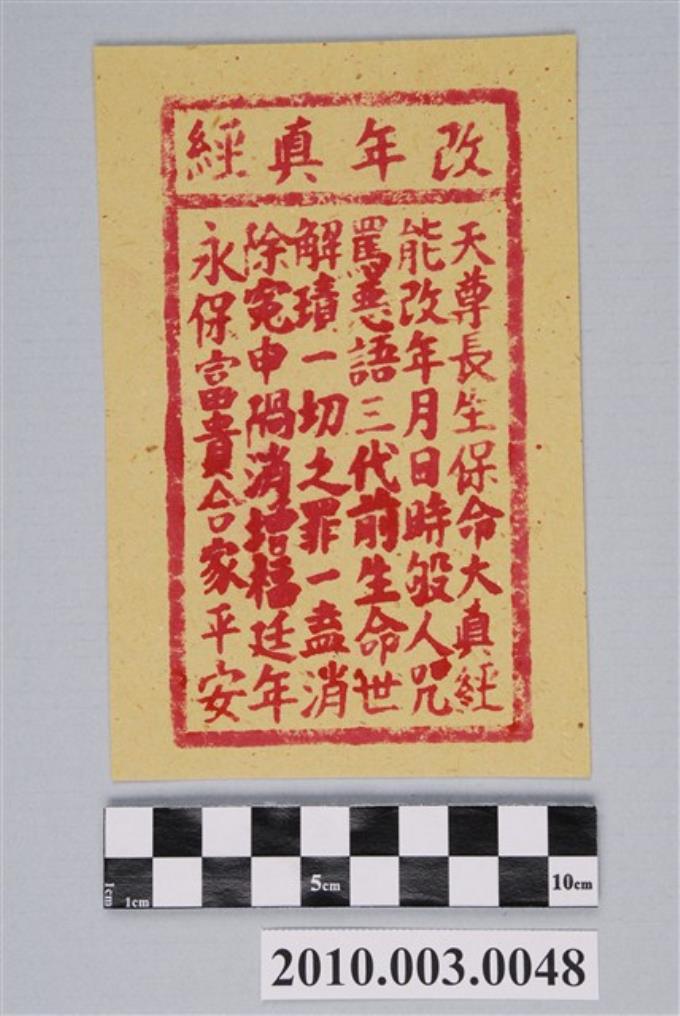 改年真經
天尊長生保命大真經
能改年月日時毀人咒
罵惡語三代前生命世
解積一切之罪一盡消
除冤申禍消增福廷年
永保富貴合家平安
1cm
1cm
5cm
10cm
2010.003.0048